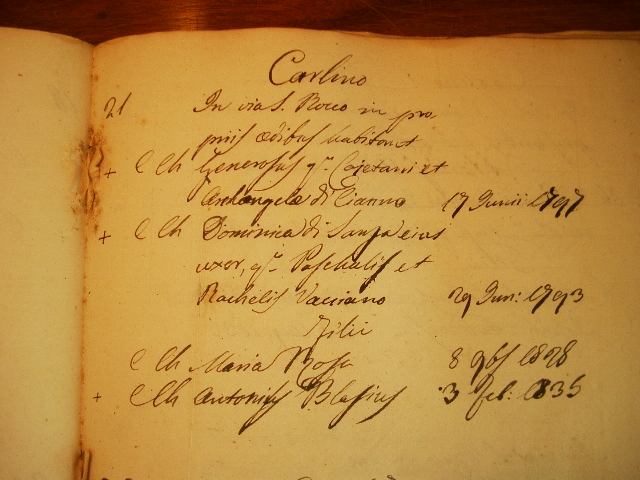 Carlino
21 In via S. Rocco in pro
priis ædibus habitant
+ C Ch Generosus q.m Cajetani et
Archangelæ di Cianno 17 Junii 1797
+ C Ch Dominica di Sanza eius
uxor, q.m Paschalis et
Rachelis Vacciano 29 Jun: 1793
Filii
C Ch Maria Rosa 8 9bs 1828
+ C Ch Antonius Blasius 3 feb: 1835